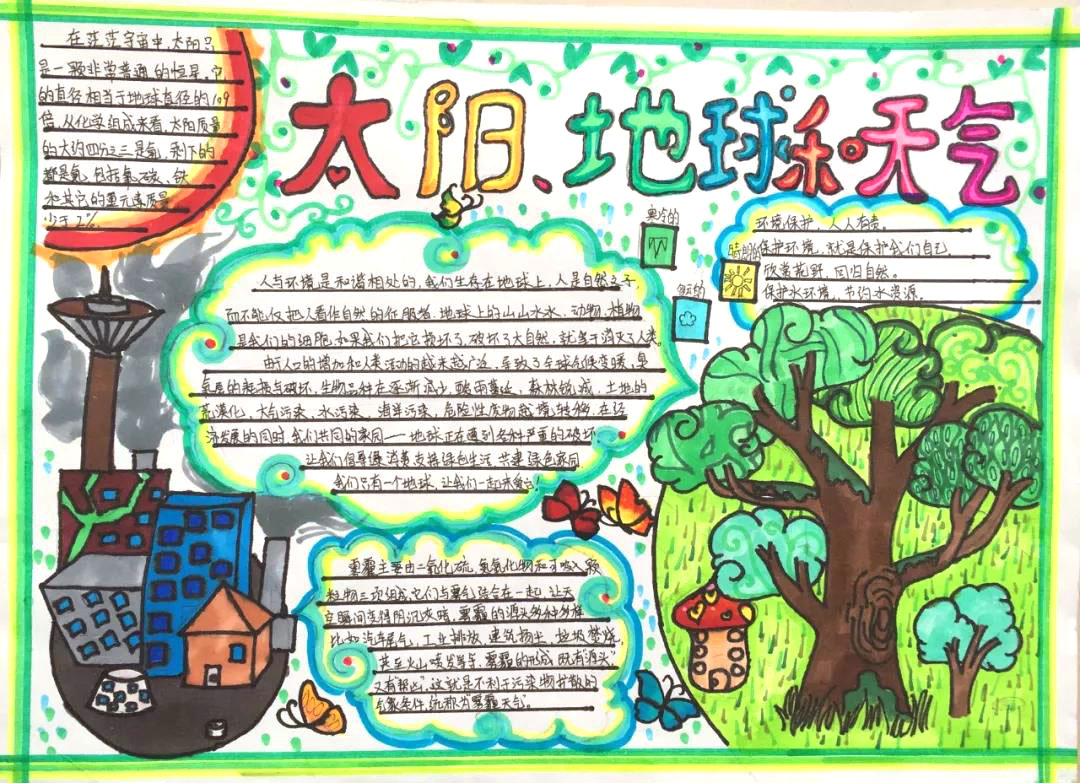 太阳、地球和天气
在茫茫宇宙中，太阳只
是一颗非常普通的恒星，它
的直径相当于地球直径的109
倍，从化学组成来看，太阳质量
的大约四分之三是氢，剩下的
都是氦，包括氧、碳、铁
和其它的重元素质量
少于2%。
寒冷的
晴朗的
环境保护，人人有责。
保护环境，就是保护我们自己。
欣赏荒野，回归自然。
保护水环境，节约水资源。
人与环境是和谐相处的，我们生存在地球上，人是自然之子
而不能仅把人看作自然的征服者。地球上的山山水水、动物、植物
是我们的细胞，如果我们把它损坏了，破坏了大自然，就等于消灭了人类。
由于人的增加和人类活动的越来越广泛，导致了全球气候变暖、臭
氧层的耗损与破坏、生物品种在逐渐减少、酸雨蔓延、森林锐减、土地的
荒漠化、大气污染、水污染、海洋污染、危险性废物越境转移，在经
济发展的同时，我们共同的家园——地球正在遭到各种严重的破坏。
让我们倡导 消费支持绿色生活，共建绿色家园
我们只有一个地球，让我们一起来爱它！
雾霾主要由二氧化硫、氮氧化物和可吸入颗
粒物三项组成，它们与雾气结合在一起，让天
空瞬间变得阴沉灰暗，雾霾的源头多种多样，
比如汽车尾气、工业排放、建筑扬尘、垃圾焚烧，
甚至火山喷发等等，雾霾的形成既有“源头”，
又有帮凶”，这就是不利于污染物扩散的
气象条件，统称为“雾霾天气”。